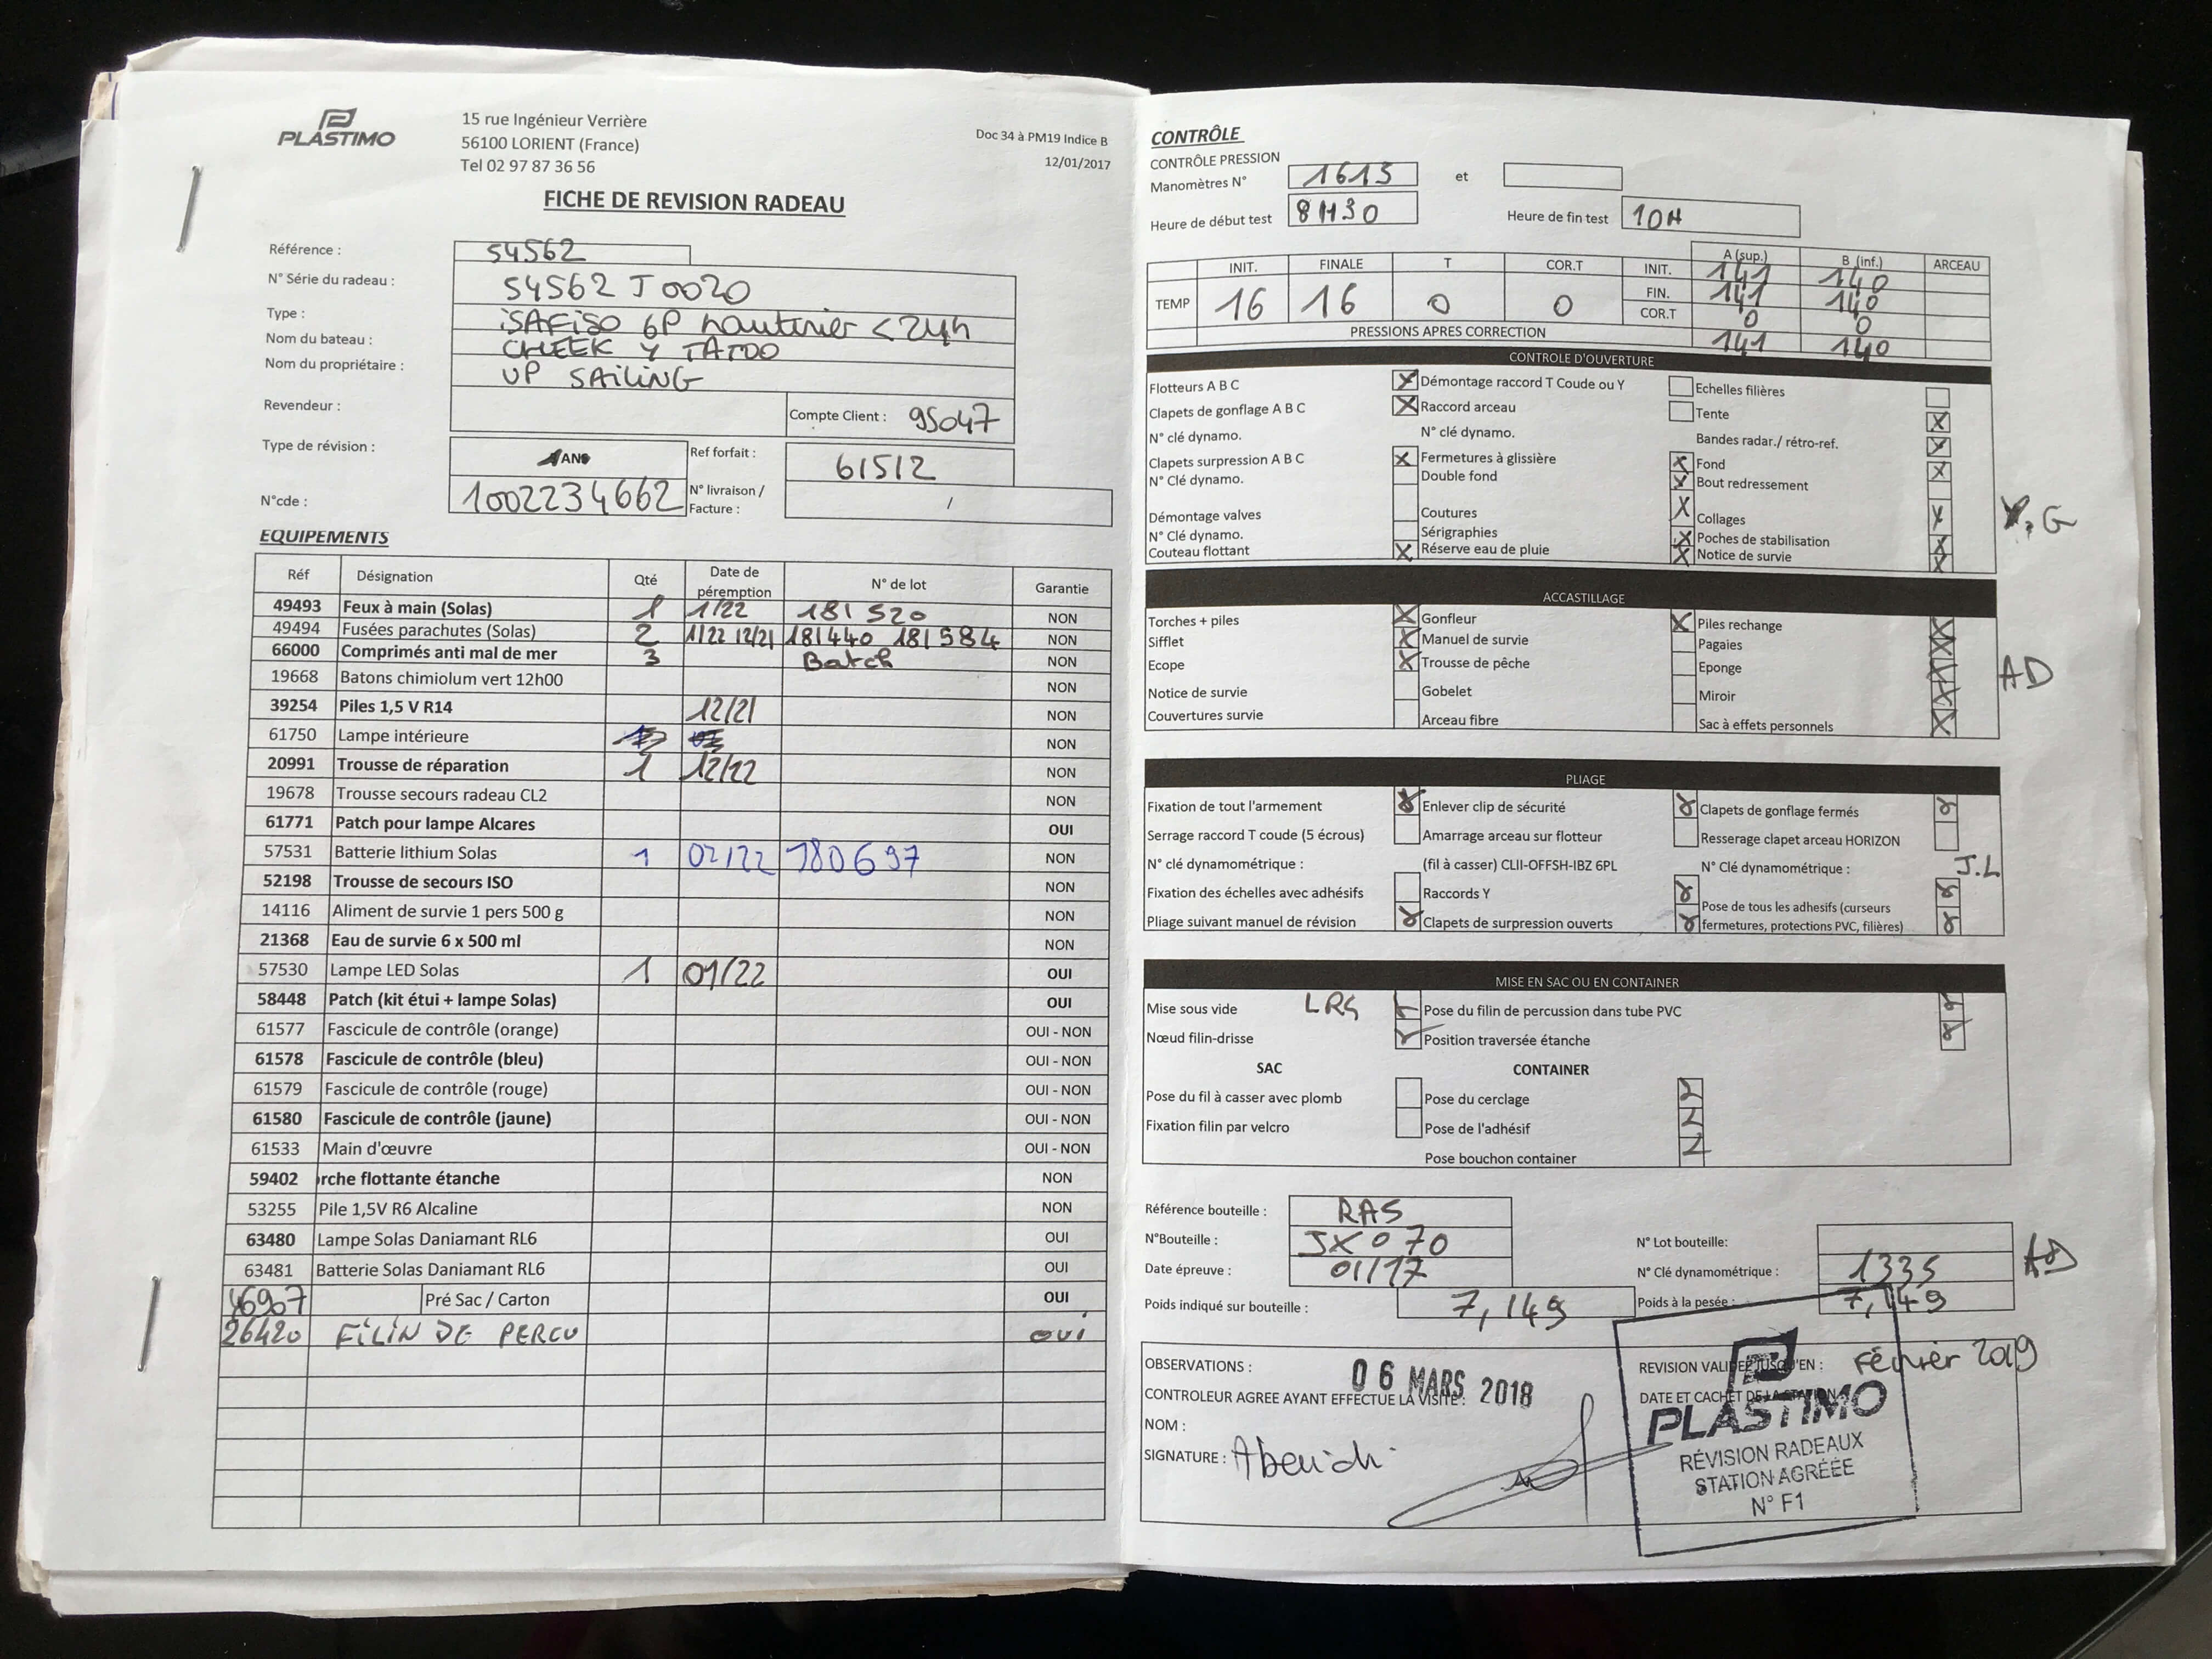 PLASTIMO
15 rue Ingénieur Verrière
56100 LORIENT (France)
Tel 02 97 87 36 56
Doc 34 à PM19 Indice B
12/01/2017
FICHE DE REVISION RADEAU
Référence : 54562
N° Série du radeau : 54562 J 0020
Type : iSAFiSO 6P hauturier < 24h
Nom du bateau : CHEEK Y TATOO
Nom du propriétaire : UP SAiLiNG
Revendeur : Compte Client : 95047
Type de révision : ANS Ref forfait : 61512
N°cde : 1002234662 N° livraison / Facture : /
EQUIPEMENTS
Réf Désignation Qté Date de péremption N° de lot Garantie
49493 Feux à main (Solas) 1 1/22 181 520 NON
49494 Fusées parachutes (Solas) 2 1/22 12/21 181440 181584 NON
66000 Comprimés anti mal de mer 3 Batch NON
19668 Batons chimiolum vert 12h00 NON
39254 Piles 1,5 V R14 12/21 NON
61750 Lampe intérieure NON
20991 Trousse de réparation 1 12/22 NON
19678 Trousse secours radeau CL2 NON
61771 Patch pour lampe Alcares OUI
57531 Batterie lithium Solas 1 02/22 180697 NON
52198 Trousse de secours ISO NON
14116 Aliment de survie 1 pers 500 g NON
21368 Eau de survie 6 x 500 ml NON
57530 Lampe LED Solas 1 01/22 OUI
58448 Patch (kit étui + lampe Solas) OUI
61577 Fascicule de contrôle (orange) OUI - NON
61578 Fascicule de contrôle (bleu) OUI - NON
61579 Fascicule de contrôle (rouge) OUI - NON
61580 Fascicule de contrôle (jaune) OUI - NON
61533 Main d'œuvre OUI - NON
59402 rche flottante étanche NON
53255 Pile 1,5V R6 Alcaline NON
63480 Lampe Solas Daniamant RL6 OUI
63481 Batterie Solas Daniamant RL6 OUI
46907 Pré Sac / Carton OUI
26420 FILIN DE PERCU OUI
CONTRÔLE
CONTRÔLE PRESSION
Manomètres N° 1613 et
Heure de début test 8H30 Heure de fin test 10H
INIT. FINALE T COR.T A (sup.) B (inf.) ARCEAU
TEMP 16 16 0 0
INIT. 141 140
FIN. 141 140
COR.T 0 0
PRESSIONS APRES CORRECTION 141 140
CONTROLE D'OUVERTURE
Flotteurs A B C X Démontage raccord T Coude ou Y Echelles filières
Clapets de gonflage A B C X Raccord arceau Tente X
N° clé dynamo. N° clé dynamo. Bandes radar./ rétro-ref. X
Clapets surpression A B C X Fermetures à glissière X Fond X
N° Clé dynamo. Double fond X Bout redressement
Démontage valves Coutures X Collages X
N° Clé dynamo. Sérigraphies X Poches de stabilisation X
Couteau flottant X Réserve eau de pluie X Notice de survie X
ACCASTILLAGE
Torches + piles X Gonfleur X Piles rechange X
Sifflet X Manuel de survie Pagaies X
Ecope X Trousse de pêche Eponge X
Notice de survie Gobelet Miroir X
Couvertures survie Arceau fibre Sac à effets personnels X
AD
PLIAGE
Fixation de tout l'armement Enlever clip de sécurité Clapets de gonflage fermés
Serrage raccord T coude (5 écrous) Amarrage arceau sur flotteur Resserage clapet arceau HORIZON
N° clé dynamométrique : (fil à casser) CLII-OFFSH-IBZ 6PL N° Clé dynamométrique : J.L
Fixation des échelles avec adhésifs Raccords Y Pose de tous les adhesifs (curseurs
Pliage suivant manuel de révision Clapets de surpression ouverts fermetures, protections PVC, filières)
MISE EN SAC OU EN CONTAINER
Mise sous vide LRG Pose du filin de percussion dans tube PVC
Nœud filin-drisse Position traversée étanche
SAC CONTAINER
Pose du fil à casser avec plomb Pose du cerclage
Fixation filin par velcro Pose de l'adhésif
Pose bouchon container
Référence bouteille : RAS
N°Bouteille : JX 070 N° Lot bouteille:
Date épreuve : 01/17 N° Clé dynamométrique : 1335
AD
Poids indiqué sur bouteille : 7,149 Poids à la pesée : 7,149
OBSERVATIONS : 06 MARS 2018 REVISION VALIDEE JUSQU'EN : Février 2019
CONTROLEUR AGREE AYANT EFFECTUE LA VISITE : DATE ET CACHET DE LA STATION
NOM :
SIGNATURE :
PLASTIMO
RÉVISION RADEAUX
STATION AGRÉÉE
N° F1